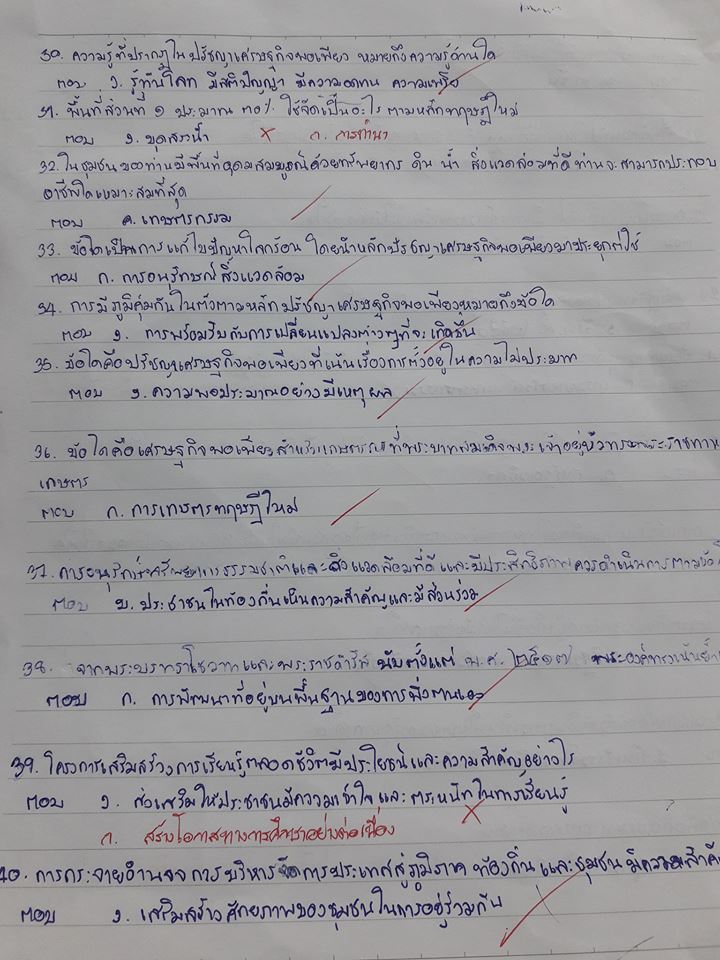 30. ความรู้ที่ปรากฏในปรัชญาเศรษฐกิจพอเพียง หมายถึงความรู้ด้านใด
ตอบ ง. รู้ทันโลก มีสติปัญญา มีความอดทน ความเพียร
31. พื้นที่ส่วนที่ ๑ ประมาณ ๓๐% ใช้จัดเป็นอะไร ตามหลักทฤษฎีใหม่
ตอบ ง. ขุดสระน้ำ × ก. การทำนา
32. ในชุมชนของท่านมีพื้นที่อุดมสมบูรณ์ด้วยทรัพยากร ดิน น้ำ สิ่งแวดล้อมที่ดี ท่านจะสามารถประกอบ
อาชีพใดเหมาะสมที่สุด
ตอบ ค. เกษตรกรรม
33. ข้อใดเป็นการแก้ไขปัญหาโลกร้อน โดยนำหลักปรัชญาเศรษฐกิจพอเพียงมาประยุกต์ใช้
ตอบ ก. การอนุรักษณ์สิ่งแวดล้อม
34. การมีภูมิคุ้มกันในตัวตามหลักปรัชญาเศรษฐกิจพอเพียงหมายถึงข้อใด
ตอบ ง. การพร้อมรับกับการเปลี่ยนแปลงต่างๆที่จะเกิดขึ้น
35. ข้อใดคือปรัชญาเศรษฐกิจพอเพียงที่เน้นเรื่องการตั้งอยู่ในความไม่ประมาท
ตอบ ง. ความพอประมาณอย่างมีเหตุผล
36. ข้อใดคือเศรษฐกิจพอเพียงสำหรับเกษตรกรที่พระบาทสมเด็จพระเจ้าอยู่หัวทรงพระราชทาน
เกษตร
ตอบ ก. การเกษตรทฤษฎีใหม่
37. การอนุรักษ์ทรัพยากรธรรมชาติและสิ่งแวดล้อมที่ดีและมีประสิทธิภาพควรดำเนินการตามข้อ
ตอบ ข. ประชาชนในท้องถิ่นเห็นความสำคัญและมีส่วนร่วม
38. จากพระบรมราโชวาทและพระราชดำริฯ นับตั้งแต่ พ.ศ. ๒๕๑๗ พระองค์ทรงเน้นย้ำ
ตอบ ก. การพัฒนาที่อยู่บนพื้นฐานของการพึ่งตนเอง
39. โครงการเสริมสร้างการเรียนรู้ตลอดชีวิตมีประโยชน์และความสำคัญอย่างไร
ตอบ ง. ส่งเสริมให้ประชาชนมีความเข้าใจและตระหนักในการเรียนรู้ ×
ก. สร้างโอกาสทางการศึกษาอย่างต่อเนื่อง
40. การกระจายอำนาจการบริหารจัดการประเทศสู่ภูมิภาค ท้องถิ่น และชุมชน มีความสำคั
ตอบ ง. เสริมสร้างศักยภาพของชุมชนในการอยู่ร่วมกัน